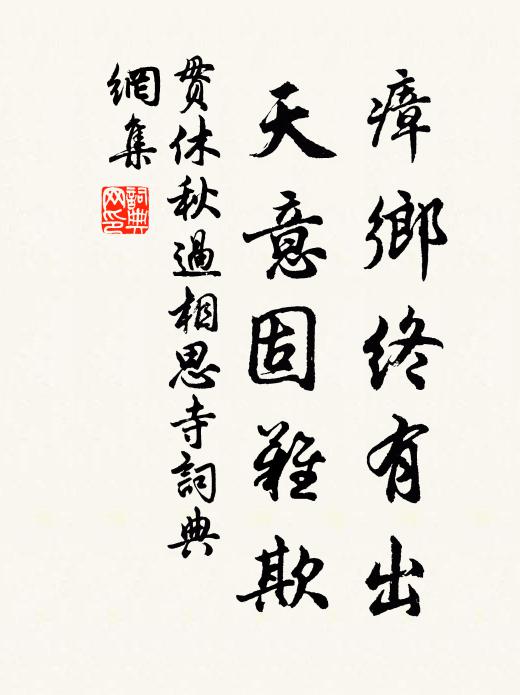 瘴鄉終有出
天意固難欺
貫休秋過相思寺詞典
網集
詞典
网印